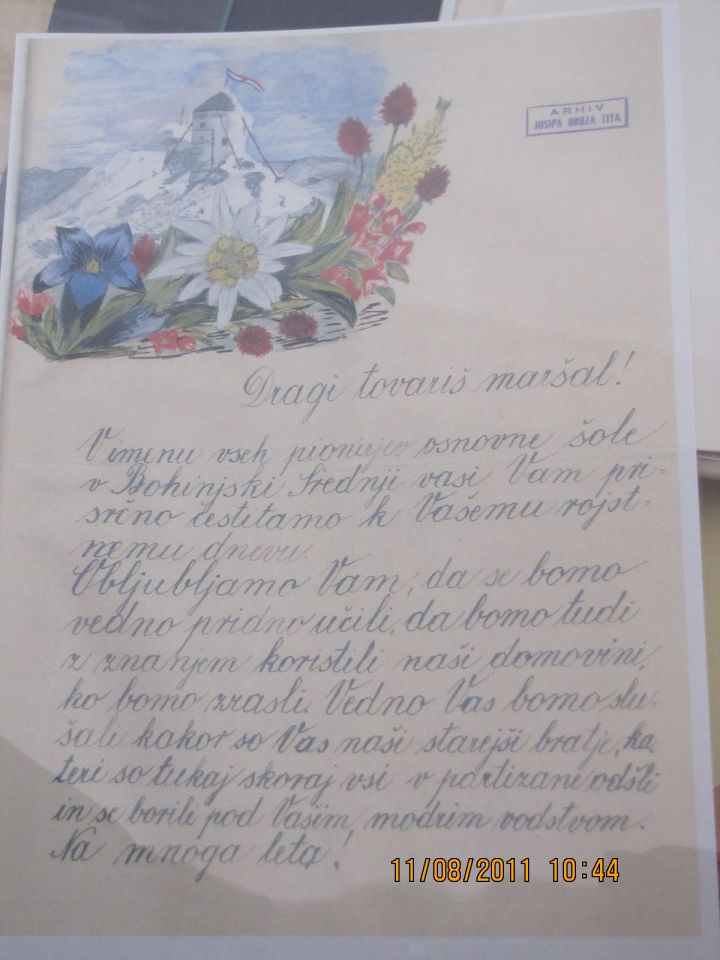 ARHIV
JOSIPA BROZA TITA
Dragi tovariš maršal!
V imenu vseh pionirjev osnovne šole
v Bohinjski Srednji vasi Vam pri-
srčno čestitamo k Vašemu rojst-
nemu dnevu.
Obljubljamo Vam, da se bomo
vedno pridno učili, da bomo tudi
z znanjem koristili naši domovini,
ko bomo zrasli. Vedno Vas bomo slu-
šali kakor so Vas naši starejši bratje, ka-
teri so tukaj skoraj vsi v partizane odšli
in se borili pod Vašim modrim vodstvom.
Na mnoga leta!
11/08/2011 10:44